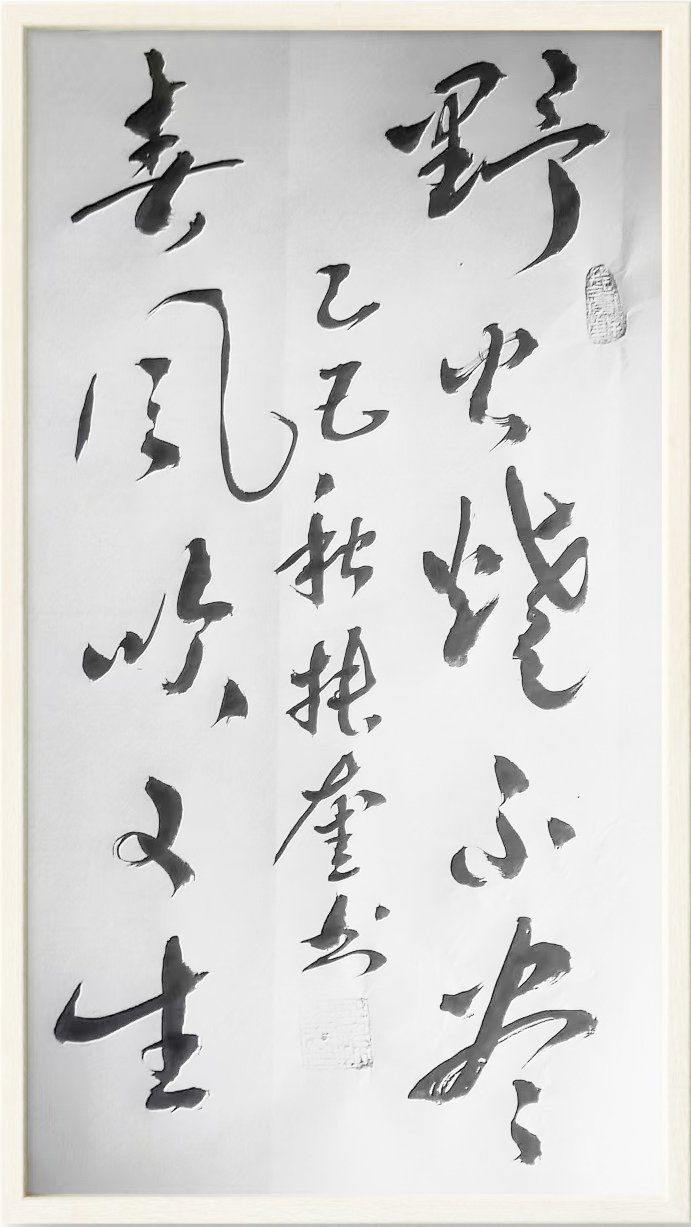 野火烧不尽
春风吹又生
乙巳秋振奎书